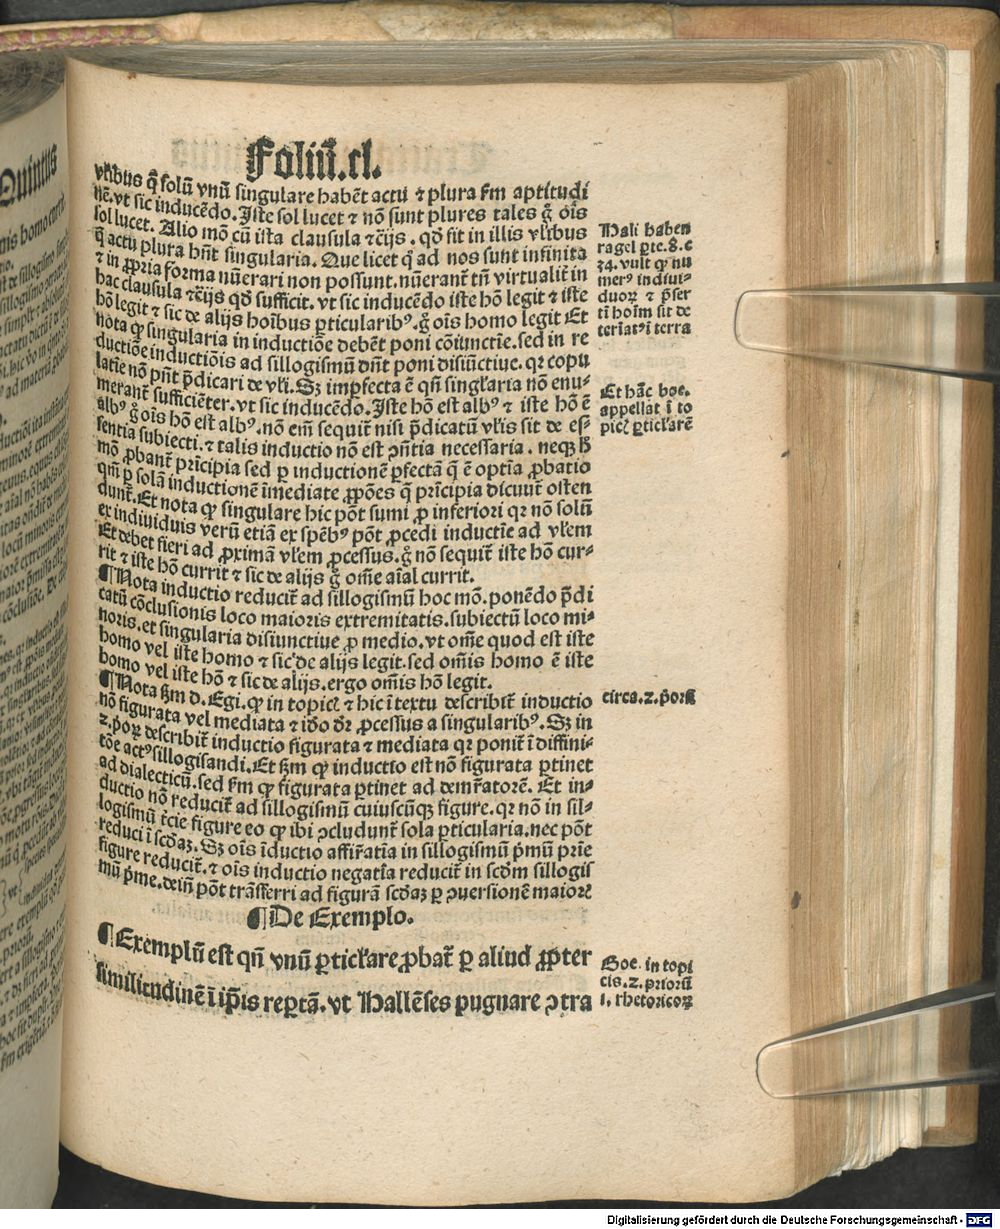 Foliū.cl.
vl'ibus q̄ solū vnū singulare habēt actu ⁊ plura s'm aptitudi
nē.vt sic inducēdo.Iste sol lucet ⁊ nō sunt plures tales g̊ oīs
sol lucet. Alio mō cū ista clausula ⁊c̄ijs. qd' fit in illis vl'ibus
q̄ actu plura hn̄t singularia. Que licet q̊ad nos sunt infinita
⁊ in ꝓpria forma nūerari non possunt.nūerant̄ tn̄ virtualit̄ in
hac clausula ⁊c̄ijs qd' sufficit. vt sic inducēdo iste hō legit ⁊ iste
hō legit ⁊ sic de alijs hoībus ꝑticularibꝰ.g̊ oīs homo legit Et
nota ꝙ singularia in inductiōe debēt poni cōiunctīe.sed in re
ductiōe inductiōis ad sillogismū dn̄t poni disiūctiue. qꝛ copu
latīe nō pn̄t p̄dicari de vl'i. Sꝫ imperfecta ē qn̄ singl'aria nō enu-
merant̄ sufficiēter. vt sic inducēdo. Iste hō est albꝰ ⁊ iste hō ē
albꝰ g̊ oīs hō est albꝰ. nō em̄ sequit̄ nisi p̄dicatū vl'is sit de es-
sentia subiecti. ⁊ talis inductio nō est ꝯn̄tia necessaria. neqꝫ h̄
mō ꝓbant̄ prīcipia sed ꝑ inductionē ꝑfectā q̄ ē optīa ꝓbatio
qm̄ ꝑ solā inductionē īmediate ꝓpōes q̄ prīcipia dicunt̄ osten
dunt̄. Et nota ꝙ singulare hic pōt sumi ꝓ inferiori qꝛ nō solū
ex indiuiduis verū etiā ex spēbꝰ pōt ꝓcedi inductīe ad vl'em
Et debet fieri ad ꝓximā vl'em ꝓcessus.g̊ nō sequit̄ iste hō cur-
rit ⁊ iste hō currit ⁊ sic de alijs g̊ om̄e aīal currit.
¶Nota inductio reducit̄ ad sillogismū hoc mō. ponēdo p̄di
catū cōclusionis loco maioris extremitatis.subiectū loco mi-
noris.et singularia disiunctiue ꝓ medio. vt om̄e quod est iste
homo vel iste homo ⁊ sic de alijs legit. sed om̄is homo ē iste
homo vel iste hō ⁊ sic de alijs. ergo om̄is hō legit.
¶Nota s'm D. Egi. ꝙ in topic̄ ⁊ hic ī textu describit̄ inductio
nō figurata vel mediata ⁊ iđo dꝛ ꝓcessus a singularibꝰ. Sꝫ in
2. p̊oꝝ describit̄ inductio figurata ⁊ mediata qꝛ ponit̄ ī diffini-
tōe actꝰ sillogisandi. Et s'm ꝙ inductio est nō figurata ꝑtinet
ad dialecticū. sed s'm ꝙ figurata ꝑtinet ad demr̄atorē. Et in-
ductio nō reducit̄ ad sillogismū cuiuscūqꝫ figure. qꝛ nō in sil-
logismū t̄cie figure eo ꝙ ibi ꝯcludunt̄ sola ꝑticularia. nec pōt
reduci ī sc̄daꝫ. Sꝫ oīs īductio affir̄atīa in sillogismū p̄mū prīe
figure reducit̄. ⁊ oīs inductio negatīa reducit̄ in sc̄dm sillogis
mū p̄me. deīn pōt trāsferri ad figurā sc̄daꝫ ꝑ ꝯuersionē maioris
¶De Exemplo.
¶Exemplū est qn̄ vnū ꝑticl'are ꝓbat̄ ꝑ aliud ꝓpter
similitudinē ī ip̄is reꝑtā. vt Hallēses pugnare ꝯtra
Hali haben
ragel ꝑte.8.c
34. vult ꝙ nu
merꝰ indiui-
duoꝝ ⁊ p̄ser
tī hoīm sit de
teriatꝰ ī terra
Et hāc boe.
appellat ī to
pic̄ ꝑticl'arē
circa.2.p̊oꝝ
Boe. in topi
cis.2. prioꝝ
1. rhetoricoꝝ
Quintus
Digitalisierung gefördert durch die Deutsche Forschungsgemeinschaft - DFG